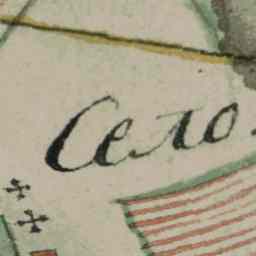 Село.